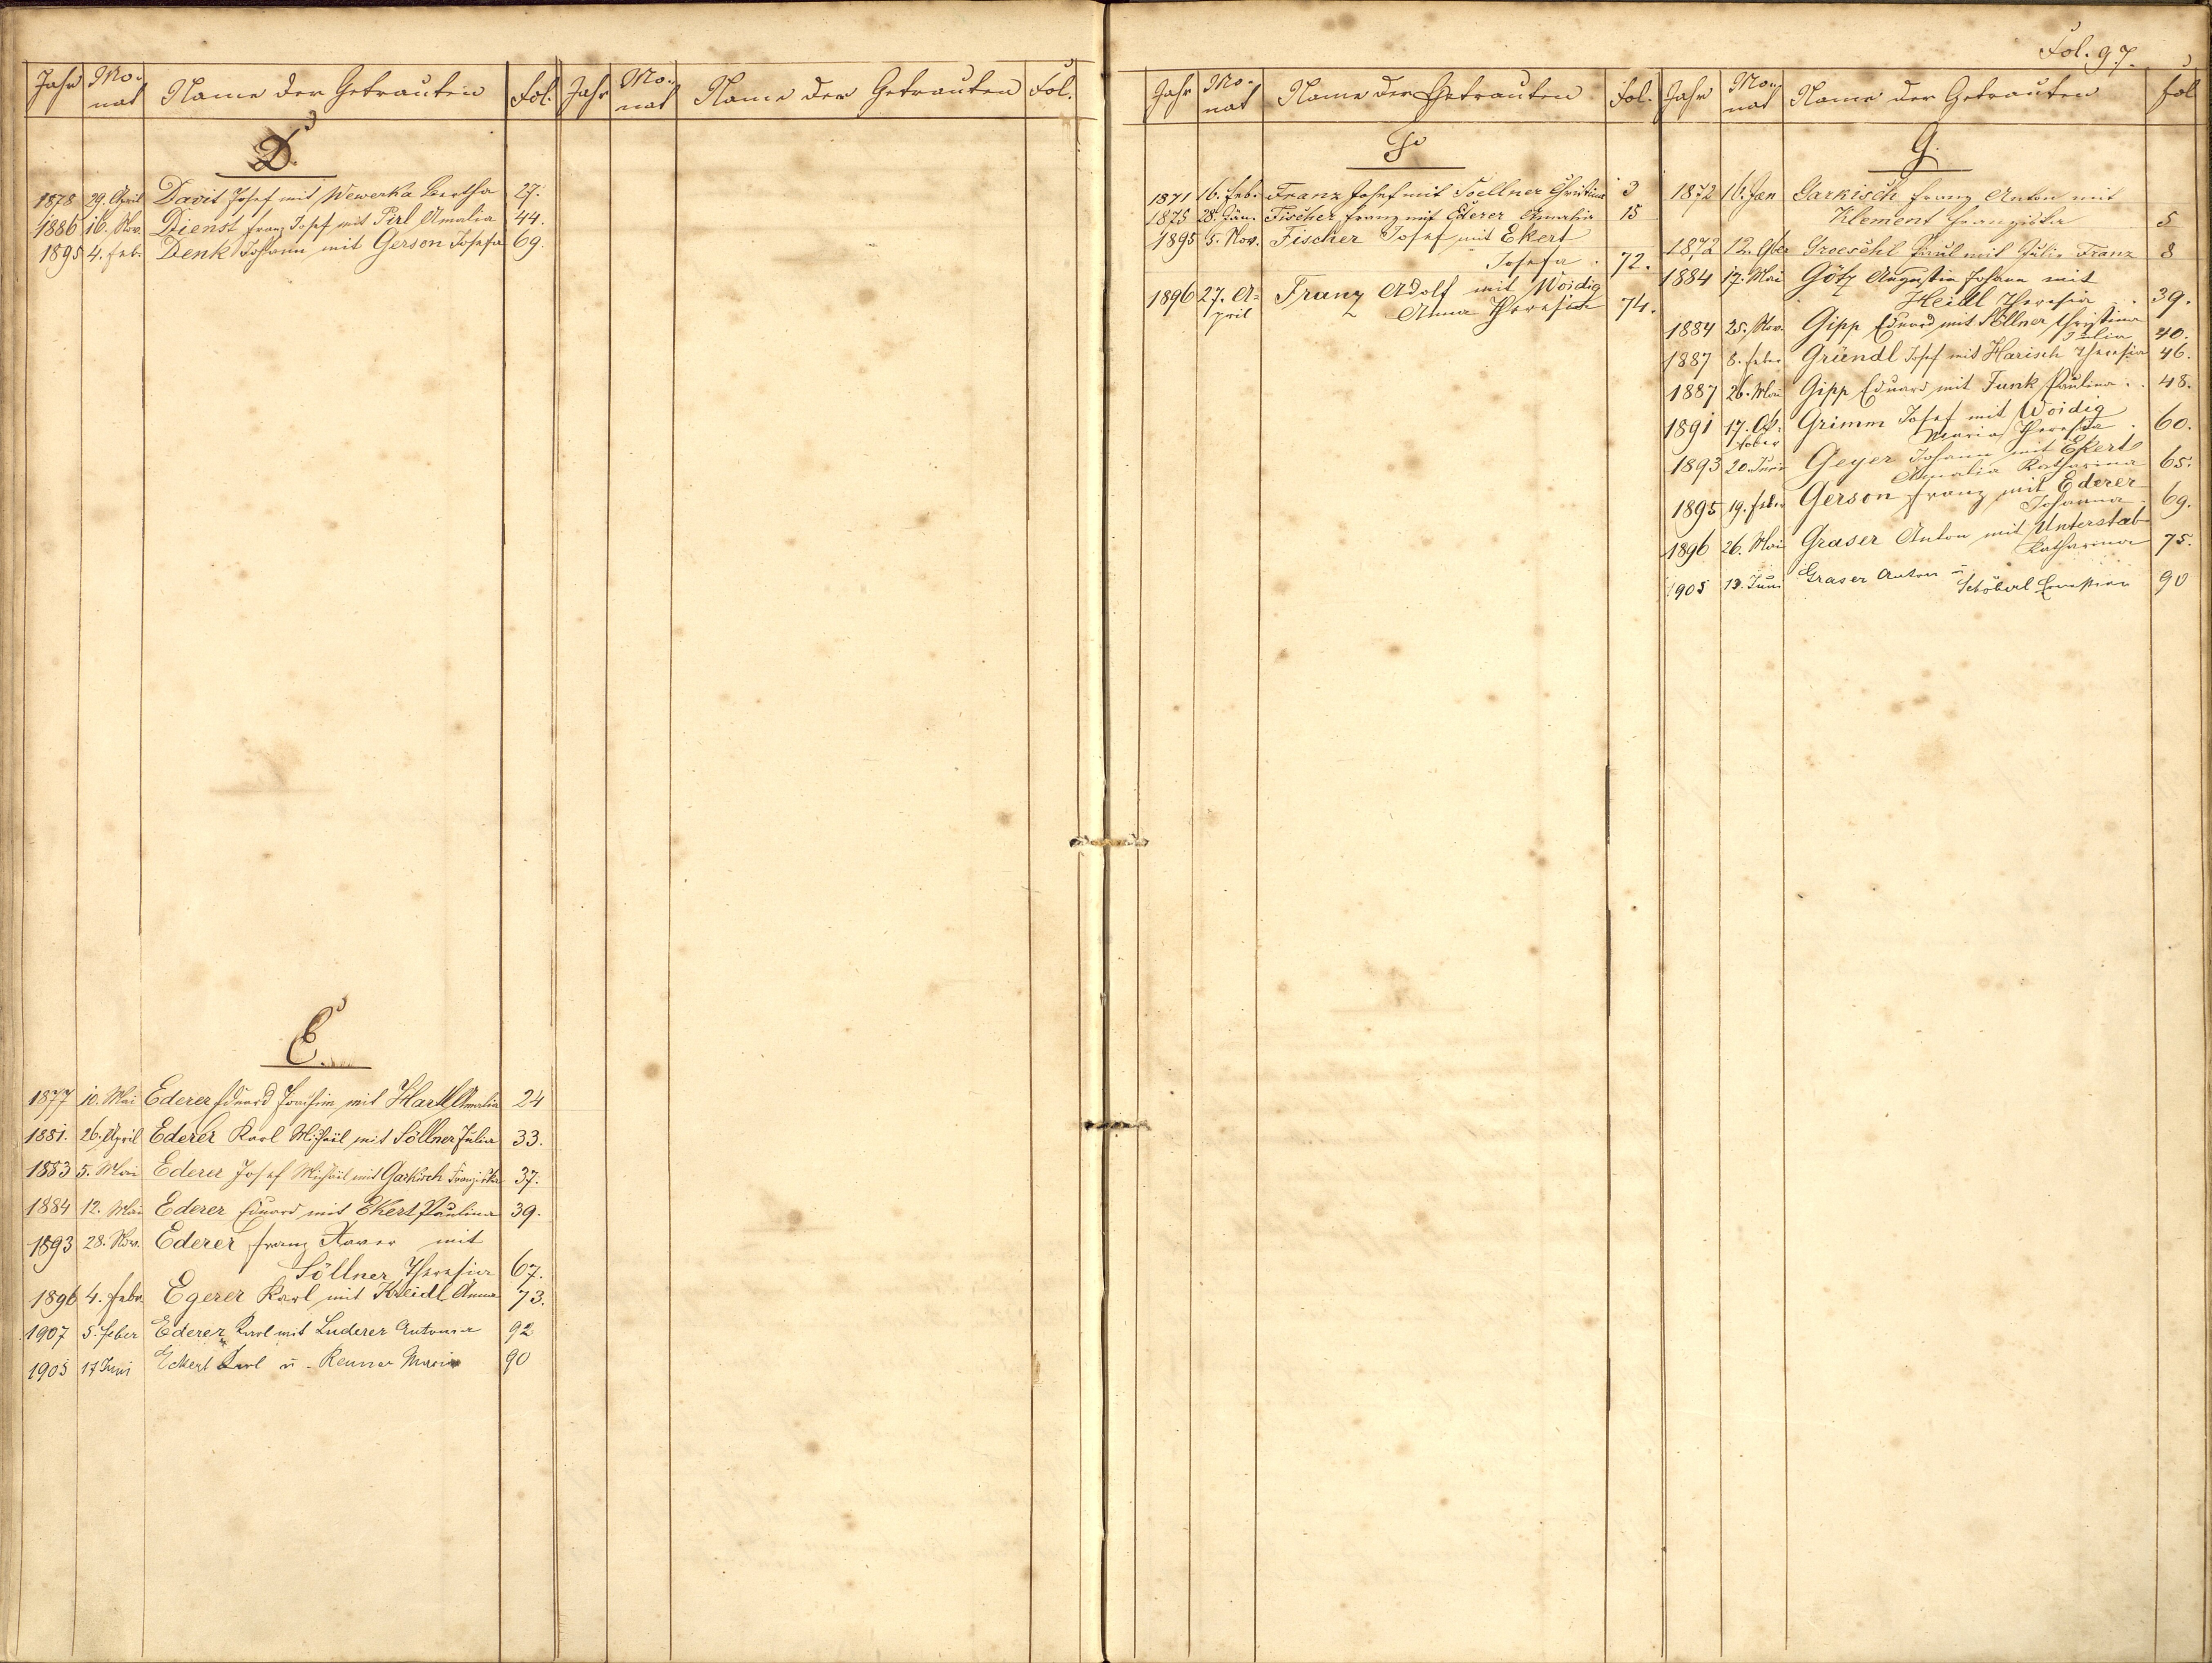 Jahr Mo-nat Name der Getrauten Fol. Jahr Mo-nat Name der Getrauten Fol.
D.
1878 29. April Davit Josef mit Wewerka Bertha 27.
1886 16. Nov. Dienst Franz Josef mit Pirl Amalia 44.
1895 4. Feb. Denk Johann mit Gerson Josefa 69.
E.
1877 10. Mai Ederer Eduard Joachim mit Hartl Amalia 24
1881. 26. April Ederer Karl Michäil mit Söllner Julia 33.
1883 5. Mai Ederer Josef Michäil mit Garkisch Franziska 37.
1884 12. Mai Ederer Eduard mit Ekert Paulina 39.
1893 28. Nov. Ederer Franz Xaver mit
Söllner Theresia 67.
1896 4. Febr. Egerer Karl mit Kreidl Anna 73.
1907 5. Feber Ederer Karl mit Luderer Antonia 92
1905 17 Juni Eckert Karl u. Renner Maria 90
Fol. 97.
Jahr Mo-nat Name der Getrauten Fol. Jahr Mo-nat Name der Getrauten Fol
F
1871 16. Feb. Franz Josef mit Soellner Christina 3
1875 28. Jän. Fischer Franz mit Ederer Amalia 15
1895 5. Nov. Fischer Josef mit Ekert
Josefa . 72.
1896 27. A- Franz Adolf mit Woidig
pril Anna Theresia 74.
G.
1872 16. Jan Garkisch Franz Anton mit
Klement Franziska 5
1872 12. Groeschl Paul mit Julie Franz 8
1884 17. Mai Götz Augustin Johann mit
Heidl Theresia . . 39.
1884 25. Nov. Gipp Eduard mit Söllner Christina
Julia 40.
1887 8. Feber Gründl Josef mit Harisch Theresia 46.
1887 26. Mai Gipp Eduard mit Funk Paulina . . 48.
1891 17. Ok- Grimm Josef mit Woidig
tober Maria Theresia . 60.
1893 20. Juni Geyer Johann mit Ekert
Amalia Katharina 65.
1895 19. Feber Gerson Franz mit Ederer
Johanna . 69.
1896 26. Mai Graser Anton mit Unterstab
Katharina 75.
1905 13. Juni Graser Anton u.
Schöberl Ernestine 90